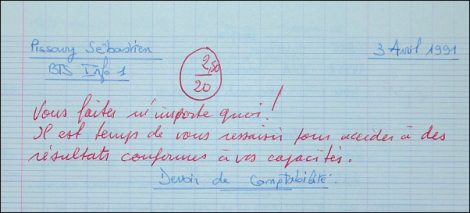 Pissavy Sébastien
3 Avril 1991
BTS Info 1
2,50
20
Vous faites n'importe quoi!
Il est temps de vous ressaisir pour accéder à des
résultats conformes à vos capacités.
Devoir de Comptabilité.